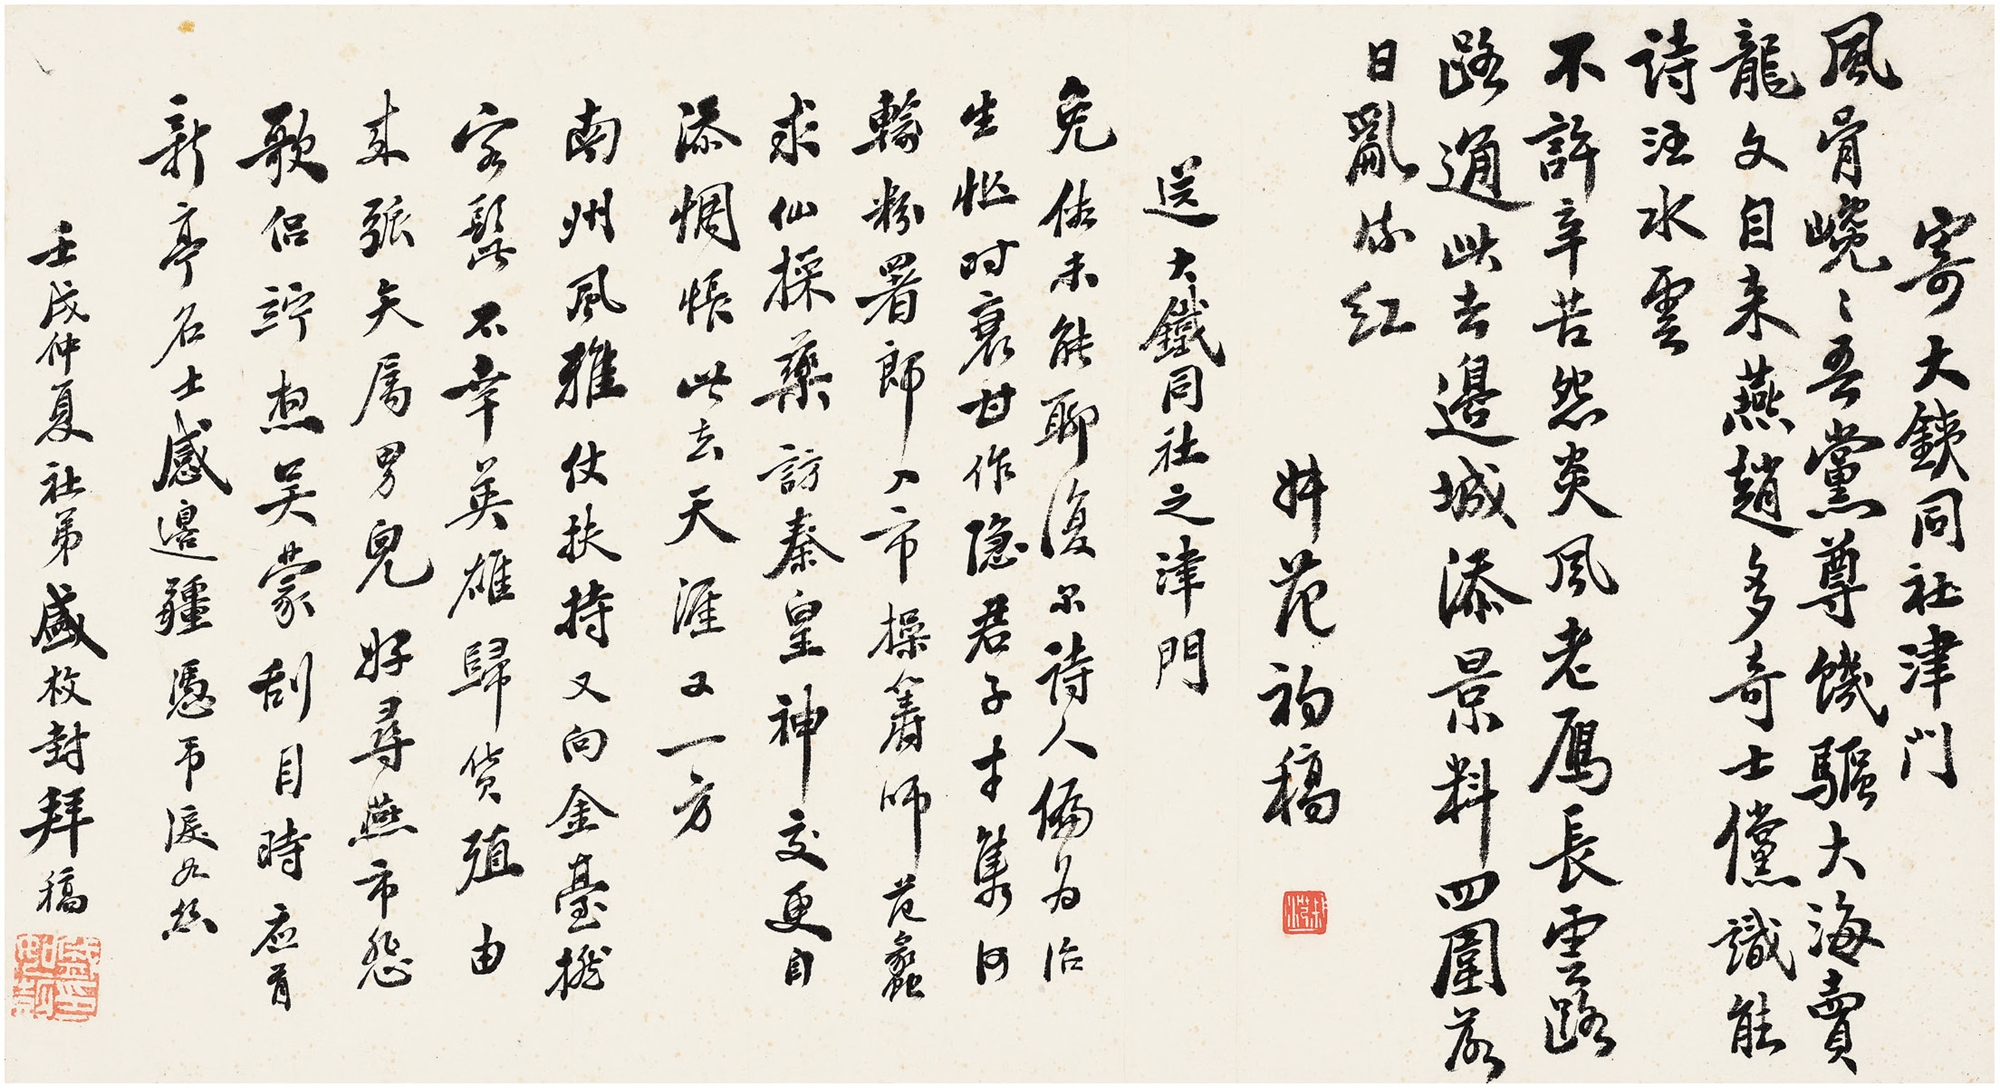 寄大鐵同社津門
風骨嶢〻吾黨尊饑驅大海賣
龍文目来燕趙多奇士儻識能
詩汪水雲
不許辛苦怨炎風老鴈長雲路
路通此去邊城添景料四圍落
日亂流紅
舛范初稿
送大鐵同社之津門
免俗未能聊復尔詩人偏为治
生忙时衰甘作隐君子才雋何
輸粉署郎入市操籌师范蠡
求仙採藥訪秦皇神交更自
添惆悵此去天涯又一方
南州風雅仗扶持又向金臺撚
客髭不幸英雄歸货殖由
来弧矢属男兒好尋燕市悲
歌侣竚想吴蒙刮目時应有
新亭名士感邊疆憑弔淚如絲
壬戌仲夏社弟盛枚封拜稿